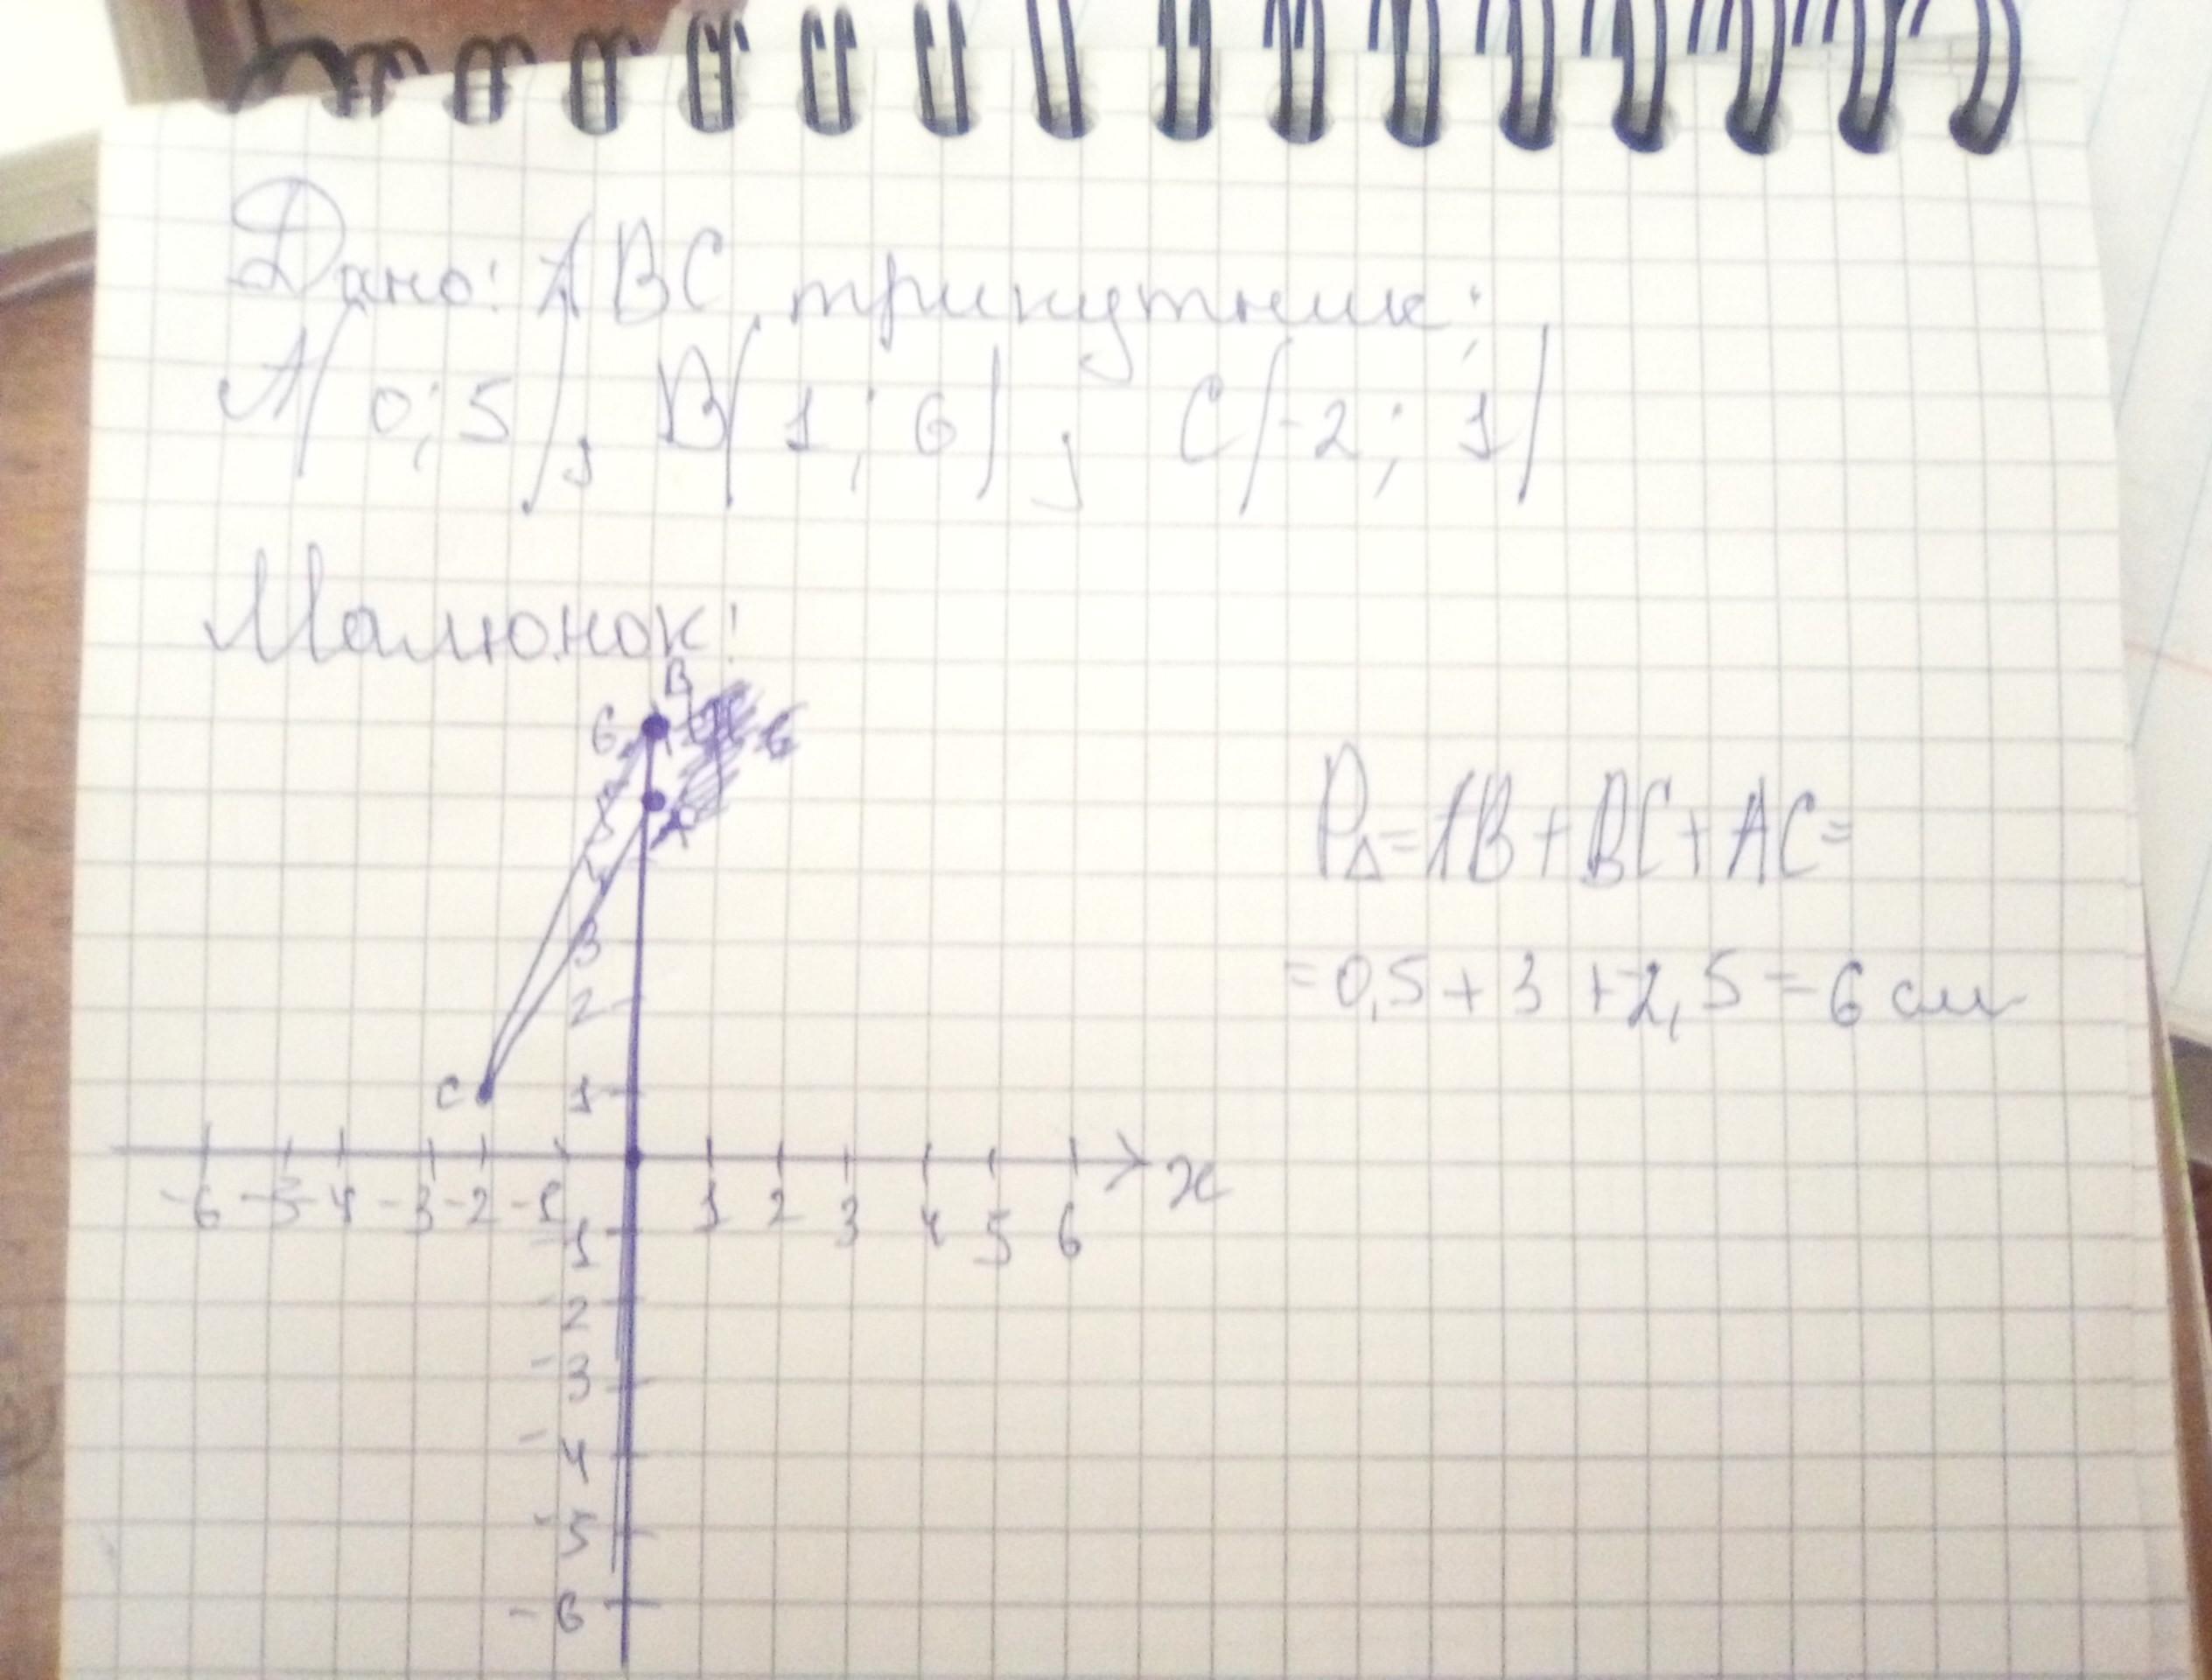 Дано: ABC трикутник;
A(0;5), B(1;6), C(-2;1)
Малюнок:
B
6
5
A
4
3
2
C 1
-6 -5 -4 -3 -2 -1 1 2 3 4 5 6 x
-1
-2
-3
-4
-5
-6
P△=AB+BC+AC=
=0,5+3+2,5=6 см